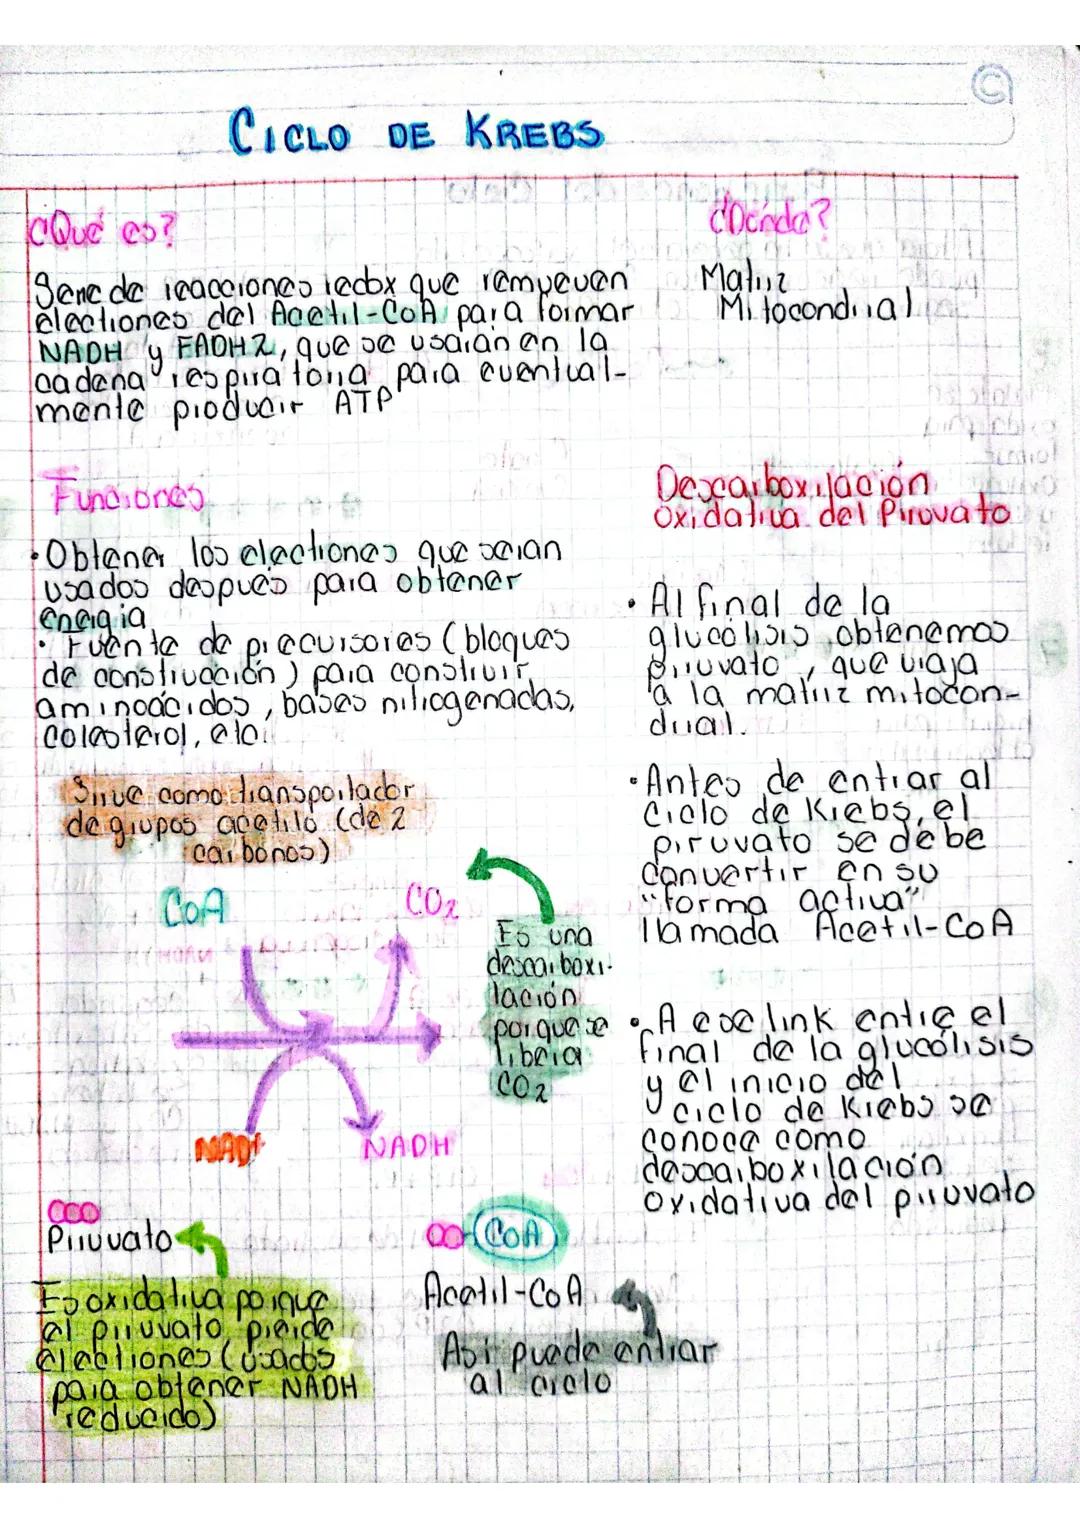 CICLO DE KREBS
¿Qué es?
Serie de reacciones redox que remueven
electrones del Acetil-CoA para formar
NADH y FADH2, que se usarán en la
cadena respiratoria para eventual-
mente producir ATP
¿Dónde?
Matriz
Mitocondrial
Funciones
• Obtener los electrones que serán
usados después para obtener
energía
• Fuente de precursores (bloques
de construcción) para construir
aminoácidos, bases nitrogenadas,
colesterol, etc.
Sirve como transportador
de grupos acetilo (de 2
carbonos)
CoA
CO2
Es una
descarboxi-
lación
porque se
libera
CO2
NAD+
NADH
Piruvato
Es oxidativa porque
el piruvato pierde
electrones (usados
para obtener NADH
reducido)
CoA
Acetil-CoA
Así puede entrar
al ciclo
Descarboxilación
oxidativa del Piruvato
• Al final de la
glucólisis obtenemos
piruvato, que viaja
a la matriz mitocon-
drial.
• Antes de entrar al
ciclo de Krebs, el
piruvato se debe
convertir en su
"forma activa"
llamada Acetil-CoA
• A ese link entre el
final de la glucólisis
y el inicio del
ciclo de Krebs se
conoce como
descarboxilación
oxidativa del piruvato